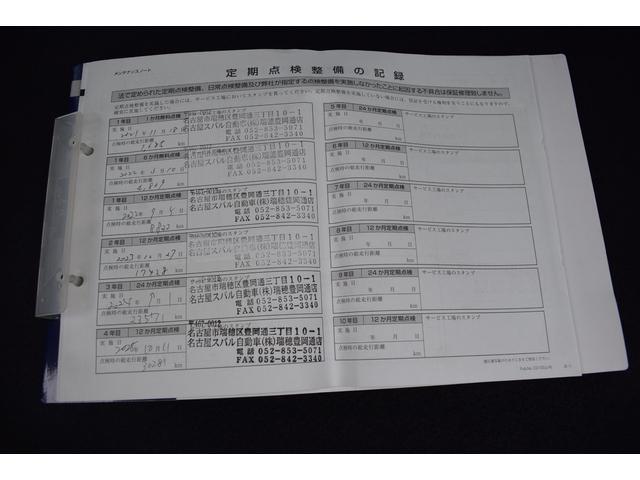 メンテナンスノート
定期点検整備の記録
法で定められた定期点検整備、日常点検整備及び弊社が指定する点検整備を実施しなかったことに起因する不具合は保証修理致しません。
1年目 1か月無料点検
実施日 2021年11月18日
点検時の総走行距離
km
名古屋市瑞穂区豊岡通三丁目10-1
名古屋スバル自動車(株)瑞穂豊岡通店
電話 052-853-5071
FAX 052-842-3340
1年目 6か月無料点検
実施日
点検時の総走行距離
km
名古屋市瑞穂区豊岡通三丁目10-1
名古屋スバル自動車(株)瑞穂豊岡通店
電話 052-853-5071
FAX 052-842-3340
1年目 12か月定期点検
実施日
点検時の総走行距離
km
名古屋市瑞穂区豊岡通三丁目10-1
名古屋スバル自動車(株)瑞穂豊岡通店
電話 052-853-5071
FAX 052-842-3340
2年目 12か月定期点検
実施日
点検時の総走行距離
17428 km
名古屋市瑞穂区豊岡通三丁目10-1
名古屋スバル自動車(株)瑞穂豊岡通店
電話 052-853-5071
FAX 052-842-3340
3年目 24か月定期点検
実施日
点検時の総走行距離
23571 km
名古屋市瑞穂区豊岡通三丁目10-1
名古屋スバル自動車(株)瑞穂豊岡通店
電話 052-853-5071
FAX 052-842-3340
4年目 12か月定期点検
実施日 2025年10月11日
点検時の総走行距離
30289 km
〒467-0012
名古屋市瑞穂区豊岡通三丁目10-1
名古屋スバル自動車(株)瑞穂豊岡通店
電話 052-853-5071
FAX 052-842-3340
5年目 24か月定期点検 サービス工場のスタンプ
実施日 年 月 日
点検時の総走行距離
km
6年目 12か月定期点検 サービス工場のスタンプ
実施日 年 月 日
点検時の総走行距離
km
7年目 24か月定期点検 サービス工場のスタンプ
実施日 年 月 日
点検時の総走行距離
km
8年目 12か月定期点検 サービス工場のスタンプ
実施日 年 月 日
点検時の総走行距離
km
9年目 24か月定期点検 サービス工場のスタンプ
実施日 年 月 日
点検時の総走行距離
km
10年目 12か月定期点検 サービス工場のスタンプ
実施日 年 月 日
点検時の総走行距離
km